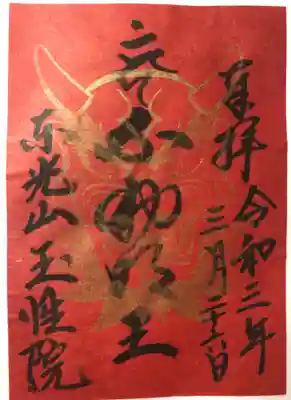 奉拝
令和三年
三月二十六日
不動明王
東光山玉性院